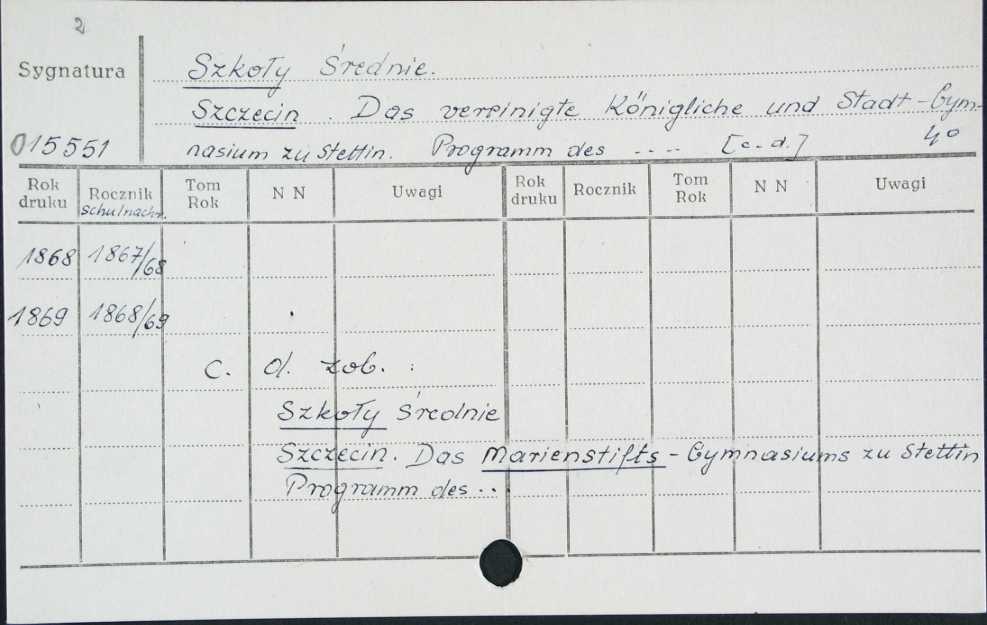 2
Sygnatura
Szkoły Średnie.
Szczecin. Das vereinigte Königliche und Stadt-Gym-
015551
nasium zu Stettin. Programm des .... [c.d.] 4°
Rok druku Rocznik Schulnachr. Tom Rok N N Uwagi Rok druku Rocznik Tom Rok N N Uwagi
1868 1867/68
1869 1868/69
c. d. zob. :
Szkoły Średnie
Szczecin. Das Marienstifts-Gymnasiums zu Stettin
Programm des ...